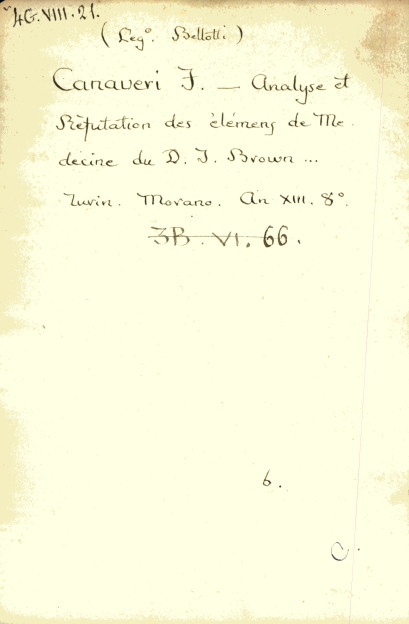 4G.VIII.21.
(Leg°. Bellotti)
Canaveri F. — Analyse et
Réfutation des élémens de Me
decine du D. J. Brown ...
Turin. Morano. An XIII. 8°.
3B. VI. 66.
6.